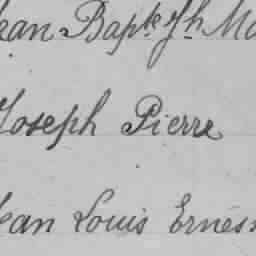 Jean Bapte Jh Ma
Joseph Pierre
Jean Louis Ernes